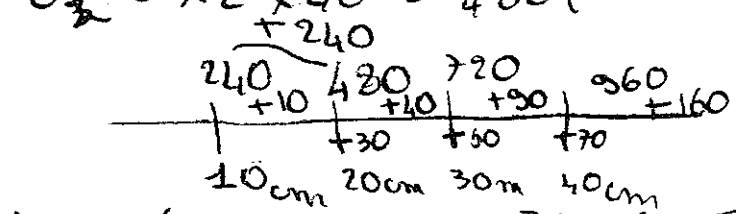 +240
240 480 720 960
+10 +40 +90 +160
+30 +50 +70
10cm 20cm 30m 40cm